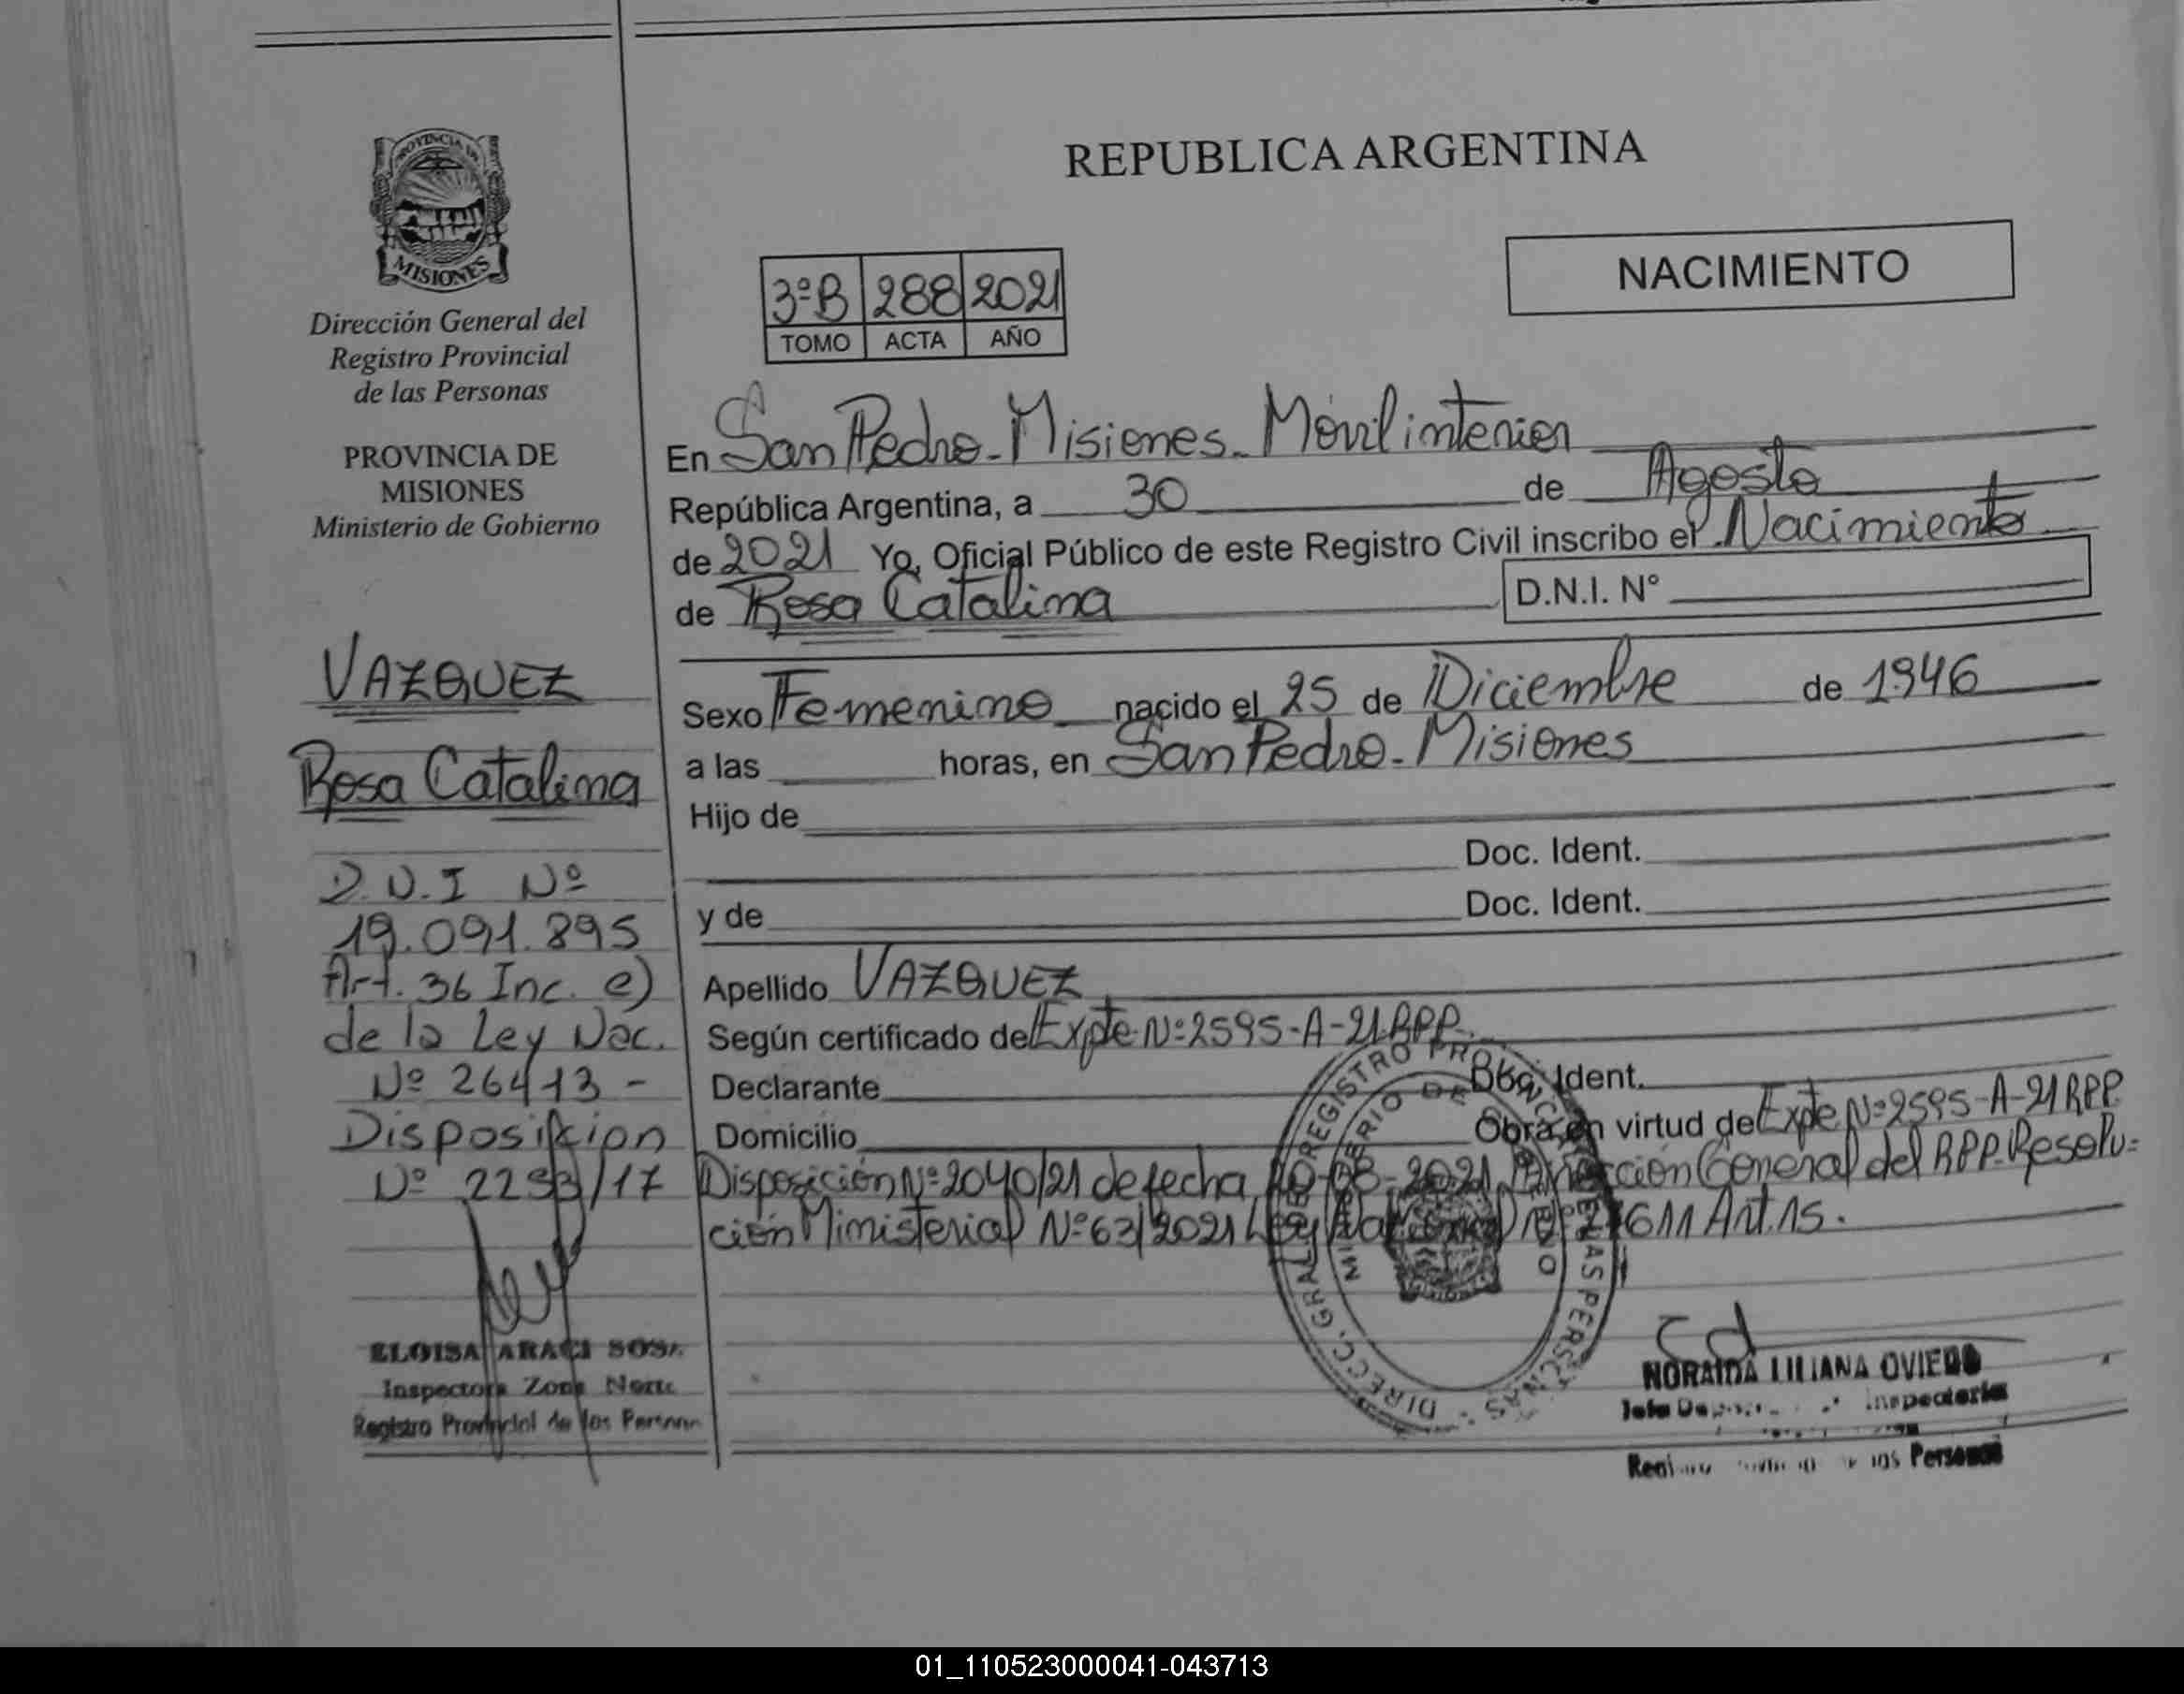 PROVINCIA DE
MISIONES
Dirección General del
Registro Provincial
de las Personas
PROVINCIA DE
MISIONES
Ministerio de Gobierno
VAZQUEZ
Rosa Catalina
D.N.I Nº
19.091.895
Art. 36 Inc. e)
de la Ley Nac.
Nº 26413 -
Disposicion
Nº 2293/17
ELOISA ARACI SOSA
Inspectora Zona Norte
Registro Provincial de las Person
REPUBLICA ARGENTINA
NACIMIENTO
3ºB 288 2021
TOMO ACTA AÑO
En San Pedro - Misiones - Móvil interior
República Argentina, a 30 de Agosto
de 2021 Yo, Oficial Público de este Registro Civil inscribo el Nacimiento
de Rosa Catalina D.N.I. Nº
Sexo Femenino nacido el 25 de Diciembre de 1946
a las horas, en San Pedro - Misiones
Hijo de
Doc. Ident.
y de Doc. Ident.
Apellido VAZQUEZ
Según certificado de Expte Nº 2595-A-21 RPP.
Declarante Doc. Ident.
Domicilio Obra en virtud de Expte Nº 2595-A-21 RPP
Disposición Nº 2040/21 de fecha 10-08-2021 Dirección General del RPP. Resolu=
ción Ministerial Nº 63/2021 Ley Nacional Nº 27611 Art. 15.
DIRECC. GRAL. DEL REGISTRO PROVINCIAL DE LAS PERSONAS
MINISTERIO DE GOBIERNO
NORAIDA LILIANA OVIEDO
Inspectoria
Personas
01_110523000041-043713